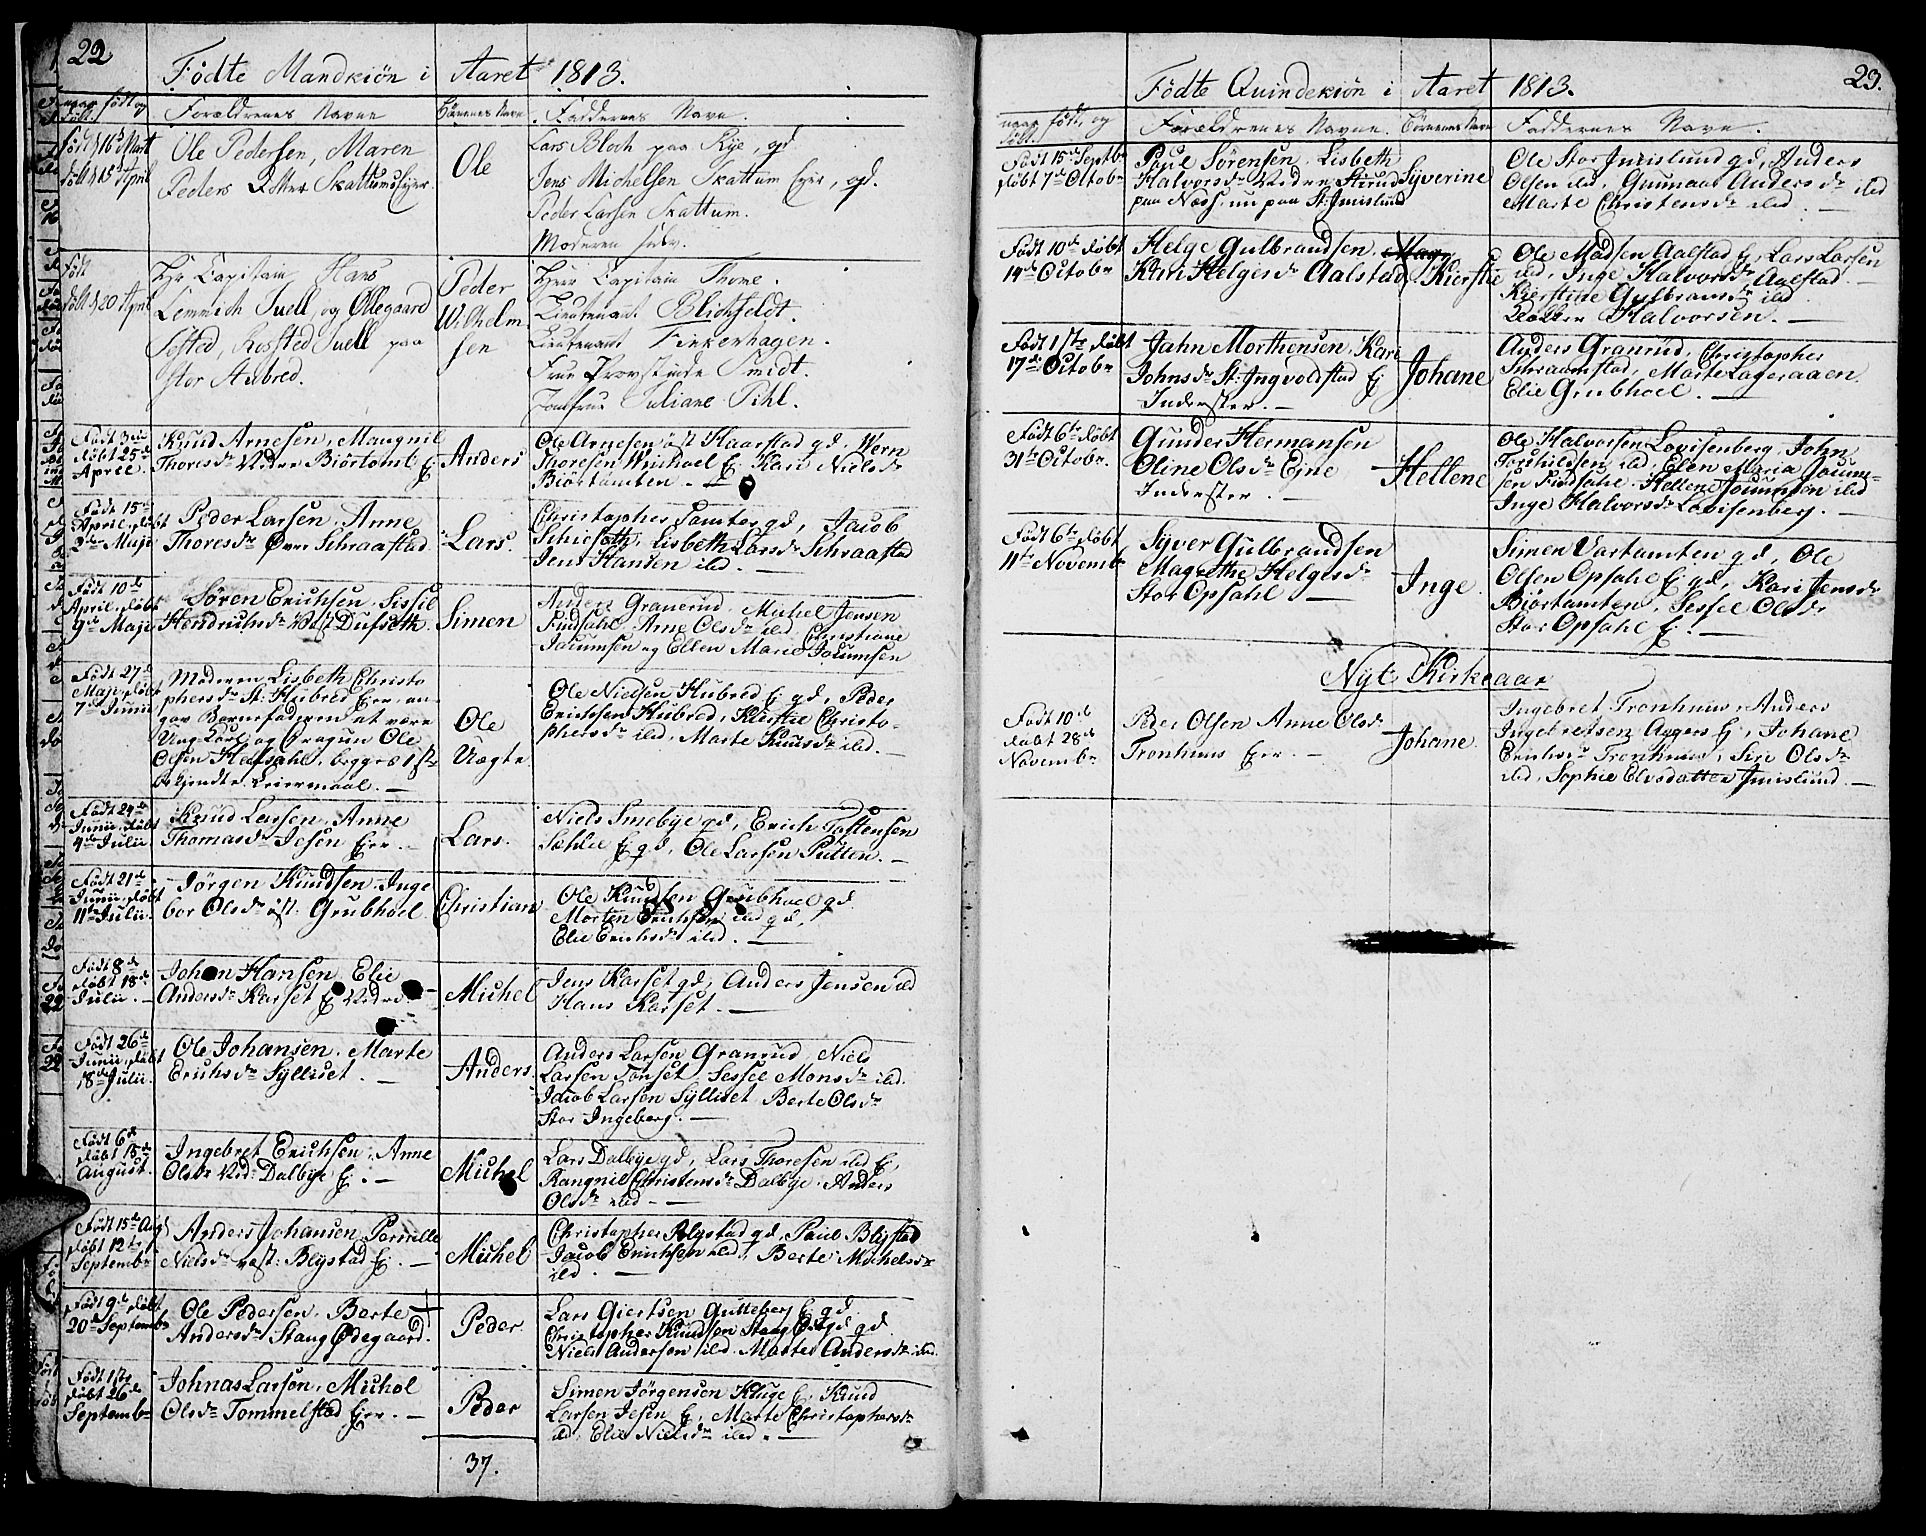 22
Födte Mandkiön i Aaret 1813.
naar födt og
Forældrenes Navne
Børnenes Navn
Faddernes Navne.
födt d 16d Mart
döbt d 15d April
Ole Pedersen, Maren
Peders Datter Skattum Ejer.
Ole
Lars Bloch paa Rye, gd
Jens Michelsen Skattum Ejer, gd.
Peder Larsen Skattum.
Moderen selv.
födt
döbt d 20 April
Hr Capitain Hans
Lemmich Juell, og Øllegaard
Sested, Juell paa
stor Hubred.
Peder
Wilhelm
sen
Herr Capitain Thone.
Lieutenant Blichfeldt.
Lieutenant Finkenhagen.
Frue Provstinde Smidt.
Jomfrue Juliane Pihl.
Födt 3die
döbt 25de
April
Knud Arnesen, Maugnil
Thoresdr Nedre Biörtomt Ej
Anders
Ole Arnesen öst Haarstad gd, Wern
Thoresen Ej, Kari Nielsdr
Biörtomten. —
Födt 15de
April, döbt
2den Maji
Peder Larsen, Anne
Thoresdr Øvre Schraastad
Lars.
Christopher Tomter gd, Jacob
Schieseth, Lisbeth Larsdr Schraastad
Jens Hansen ibd. —
Födt 10de
April, döbt
9de Maji
Sören Erichsen, Sissil
Hendrichsdr Vest Dufseth.
Simen
Anders Granerud, Michel Jensen
Findsahl, Anne Olsdr ibd, Christiane
Jocumsen og Ellen Marie Jocumsen
Födt 27de
Maji, döbt
7de Junii
Moderen Lisbeth Christo
phersdr St: Hubred Ejer, an-
gav Barnefaderen at være
Ung-Karl og Dragun Ole
Olsen Helsahl, begges 1ste
bekjendte Leiermaal. —
Ole
Uægte
Ole Nielsen Hubred Ej gd, Peder
Erichsen Hubred, Kierstie Christo-
phersdr ibd, Marte Knudsdr ibd.
Födt 24de
Junii, döbt
4de Julii
Knud Larsen, Anne
Thomasdr Jesen Ejer. —
Lars.
Niels Smebye gd, Erich Tostensen
Sæhlie Ej gd, Ole Larsen Putten. —
Födt 21de
Junii, döbt
11te Julii.
Jörgen Knudsen, Inge
bor Olsdr öst: Grubhoel.
Christian
Ole Knudsen Grubhoel gd
Morten Erichsen ibd gd,
Elie Erichsdr ibd. —
Födt 8de
döbt 18de
Julii. —
Johan Hansen, Elie
Andersdr Karset Ej Nedre —
Michel
Jens Karset gd, Anders Jensen ibd
Hans Karset. —
Födt 26de
Junii, döbt
18de Julii.
Ole Johansen, Marte
Erichsdr Sylliset. —
Anders.
Anders Larsen Granrud, Niels
Larsen Tonset, Sessel Monsdr ibd.
Jacob Larsen Sylliset Berte Olsdr
Stor Ingeberg. —
Födt 6de
döbt 15de
August.
Ingebret Erichsen, Anne
Olsdr Ned: Dalbye Ej. —
Michel
Lars Dalbye gd, Lars Thoresen ibd Ej,
Rangnil Christensdr Dalbye, Anders
Olsdr ibd —
Födt 15de Aug
döbt 12te
Septembr
Anders Johansen, Pernille
Nielsdr vest: Blystad Ej. —
Michel
Christopher Blystad gd, Paul Blystad
Jacob Erichsen ibd, Berte Michelsdr
ibd. —
Födt 9de, döbt
20de Septembr
Ole Pedersen, Berte
Andersdr Stang Ødegaard.
Peder.
Lars Giertsen Gutteberg Ej gd.
Christopher Knudsen Stang Ødgd gd.
Niels Andersen ibd. Marte Andersdr ibd.
Födt 1ste
döbt 26de
Septembr
Johnas Larsen, Michol
Olsdr Tommelstad Ejer. —
Peder
Simen Jörgensen Kluge Ej, Knud
Larsen Jesen Ej, Marte Christophersdr
ibd, Elie Nielsdr ibd. —
37.
23.
Födte Quindekiön i Aaret 1813.
naar födt, og
döbt.
Forældrenes Navne.
Börnenes Navn
Faddernes Navne.
Födt 15de Septbr
döbt 7de Octobr
Paul Sörensen, Lisbeth
Halvorsdr Nedre Strud
paa Næss, nu paa St: Imislund
Syverine
Ole Stor Imislund gd, Anders
Olsen ibd, Gunnar Andersdr ibd
Marte Christensdr ibd. —
Födt 10de döbt
14de Octobr
Helge Gulbrandsen,
Kari Helgesdr Aalstad
Kierstie
Ole Madsen Aalstad Ej, Lars Larsen
ibd, Inge Halvorsdr Aalstad. —
Kierstine Gulbransdr ibd.
Halvorsen. —
Födt 1ste döbt
17de Octobr
Jahn Morthensen, Kari
Johnsdr St: Ingvoldstad Ej
Inderster. —
Johane
Anders Granrud, Christopher
Schraamstad, Marte Lageraaen.
Elie Grubhoel. —
Födt 6te döbt
31te Octobr.
Gunder Hermansen
Oline Olsdr Ejne
Inderster. —
Hellene
Ole Halvorsen Lovisenberg, John
ibd, Elen Maria Jocum-
sen Findsahl. Hellene Jocumsen ibd
Inge Halvorsdr Lovisenberg. —
Födt 6te döbt
11te Novembr
Syver Gulbrandsen
Magrethe Helgesdr
Stor Opsahl —
Inge.
Simen Vartomten gd, Ole
Olsen Opsahl Ej gd, Kari Jensdr
Biörtomten, Sessel Olsdr
Stor Opsahl Ej. —
Nÿt Kirkeaar
Födt 10de
döbt 28de
Novembr
Peder Olsen Anne Olsdr
Tronhuus Ejer. —
Johane.
Ingebret Tronhuus, Anders
Ingebretsen Aggers Ej, Johane
Erichsdr Tronhuus, Siri Olsdr
ibd, Sophie Elvsdatter Imislund. —